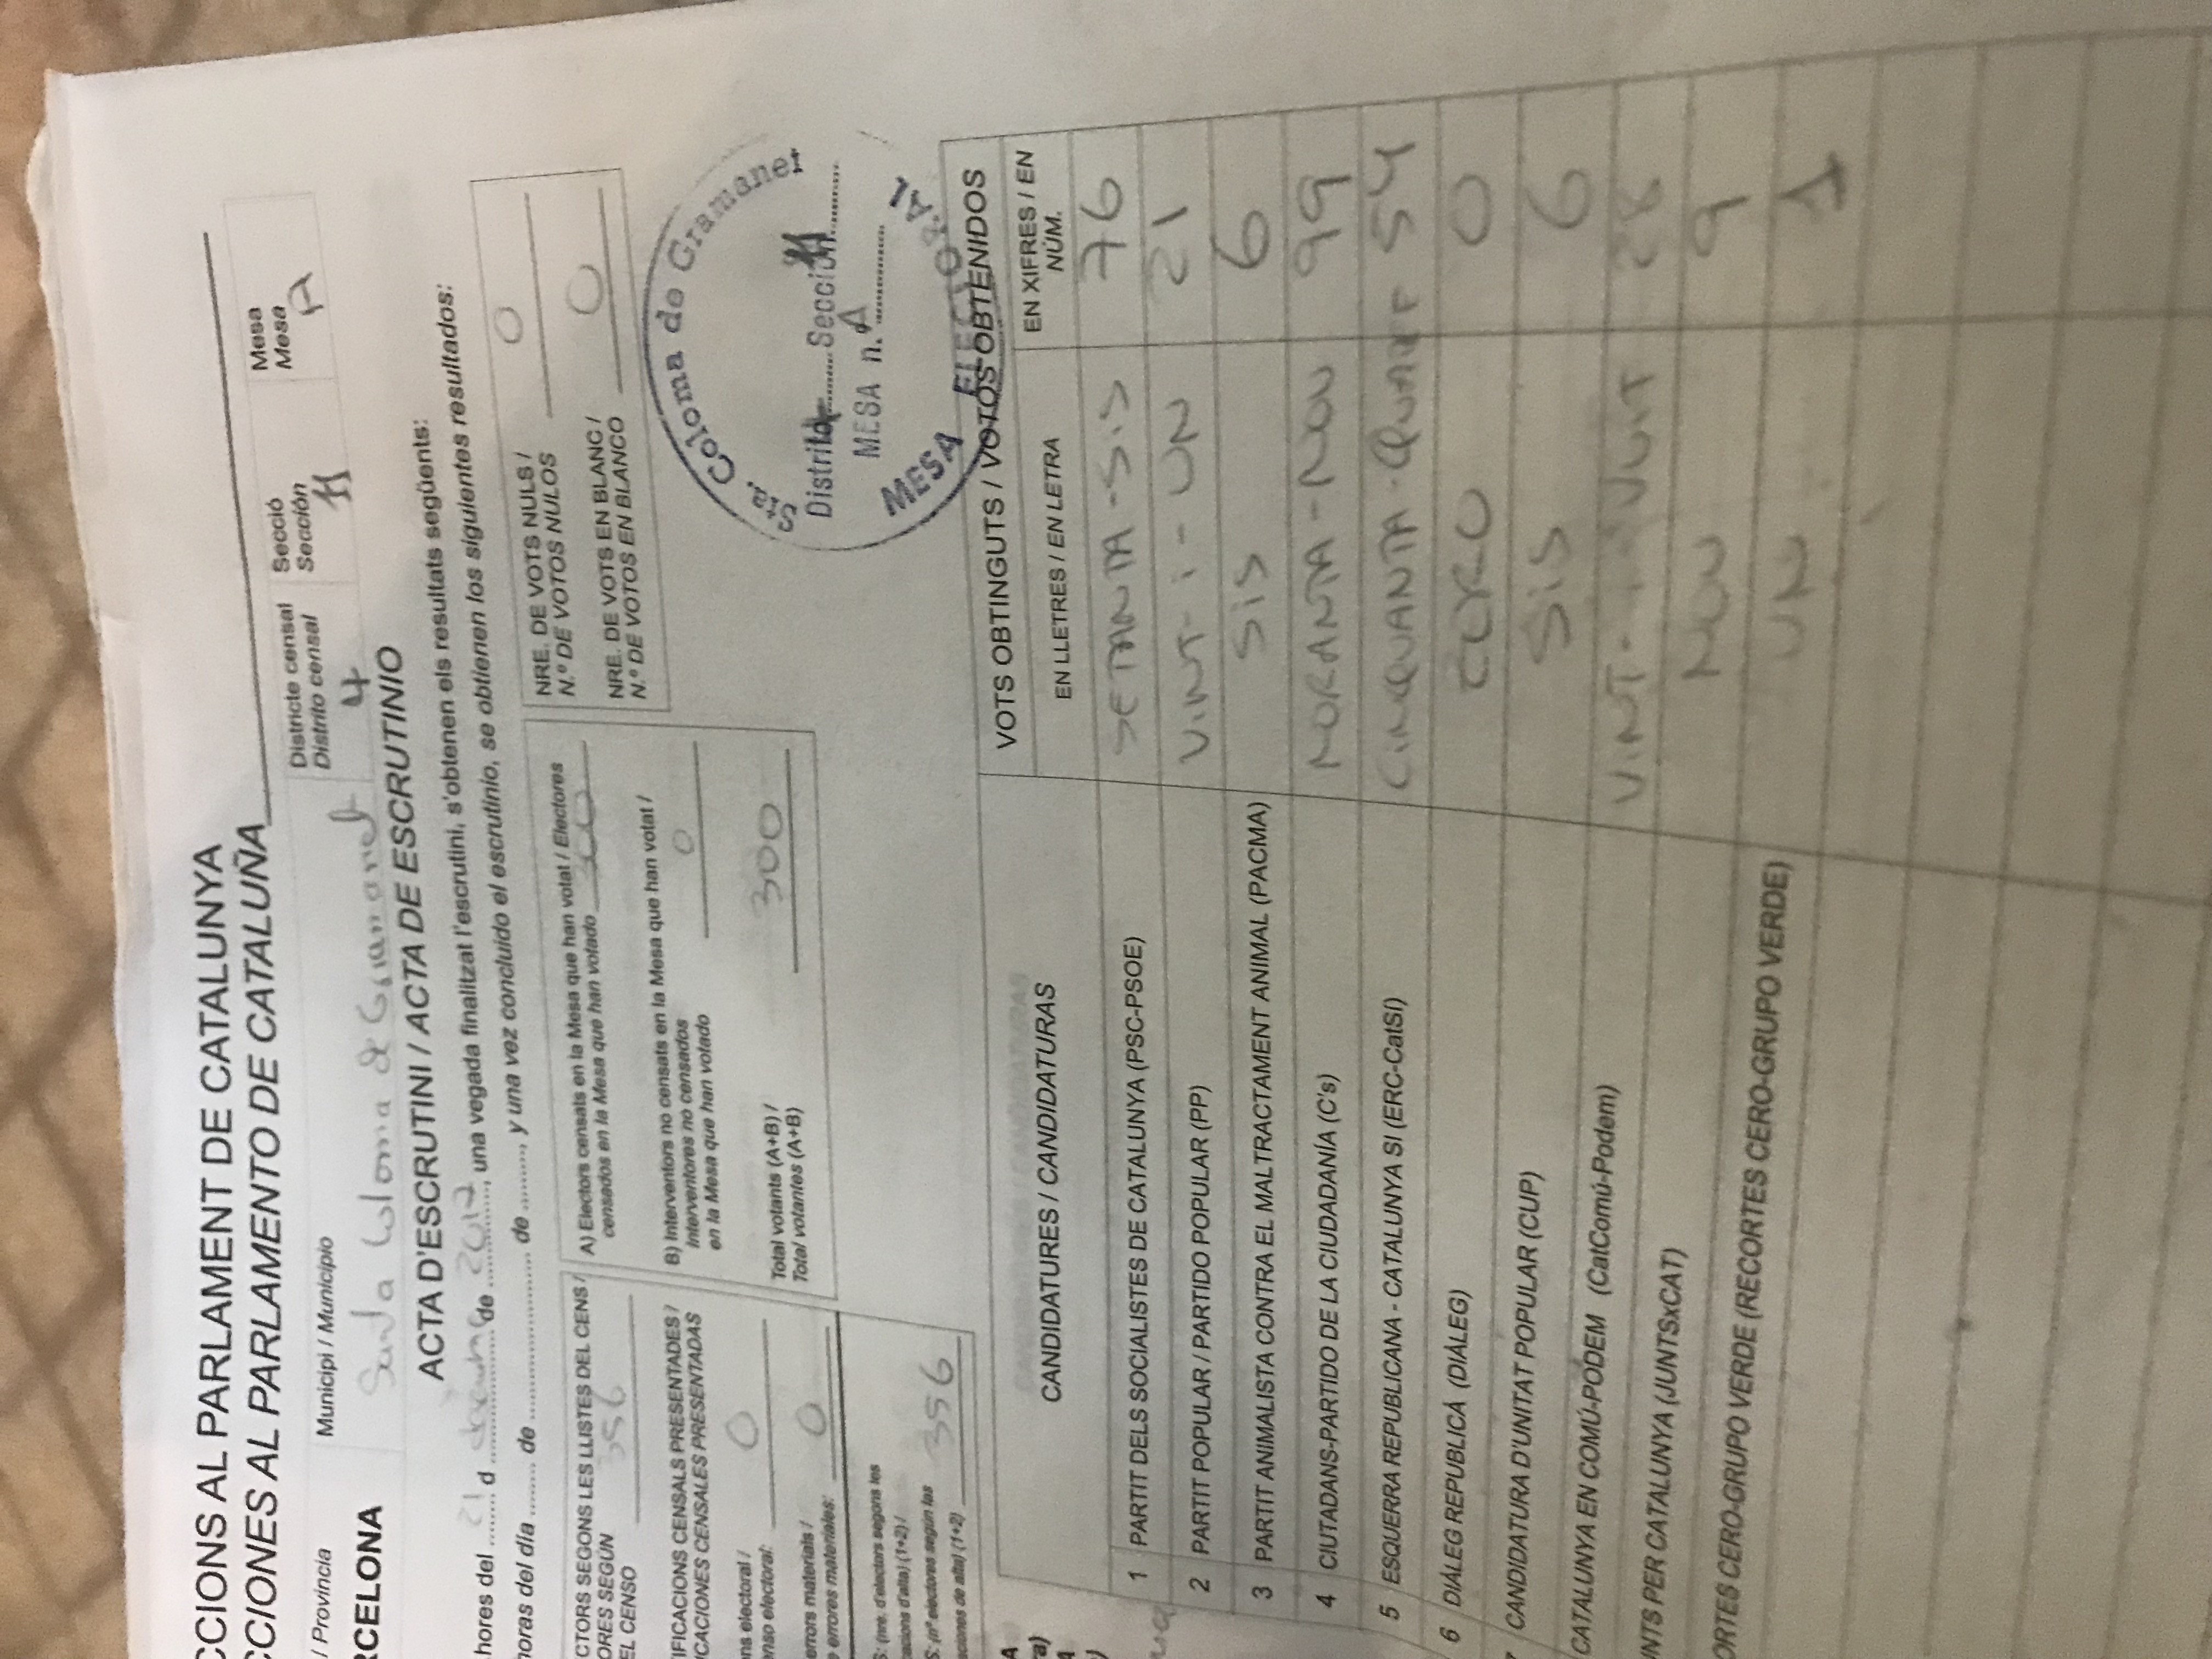 CCIONS AL PARLAMENT DE CATALUNYA
CCIONES AL PARLAMENTO DE CATALUÑA
/ Provincia
RCELONA
Municipi / Municipio
Santa Coloma de Gramanet
Districte censal
Distrito censal
4
Secció
Sección
11
Mesa
Mesa
A
ACTA D'ESCRUTINI / ACTA DE ESCRUTINIO
hores del 21 d desembre de 2017, una vegada finalitzat l'escrutini, s'obtenen els resultats següents:
horas del día ........ de ........................ de ........., y una vez concluido el escrutinio, se obtienen los siguientes resultados:
CTORS SEGONS LES LLISTES DEL CENS /
ORES SEGÚN
EL CENSO 356
IFICACIONS CENSALS PRESENTADES /
ICACIONES CENSALES PRESENTADAS
ens electoral /
enso electoral: 0
errors materials /
e errores materiales: 0
S: (nre. d'electors segons les
cacions d'alta) (1+2) /
S: (nº electores según las
aciones de alta) (1+2) 356
A) Electors censats en la Mesa que han votat / Electores
censados en la Mesa que han votado 300
B) Interventors no censats en la Mesa que han votat /
Interventores no censados
en la Mesa que han votado 0
Total votants (A+B) /
Total votantes (A+B) 300
NRE. DE VOTS NULS /
N.º DE VOTOS NULOS 0
NRE. DE VOTS EN BLANC /
N.º DE VOTOS EN BLANCO 0
Sta. Coloma de Gramanet
Distrito 4 Sección 11
MESA n.º A
MESA ELECTORAL
A
ra)
A
)
CANDIDATURES / CANDIDATURAS
VOTS OBTINGUTS / VOTOS OBTENIDOS
EN LLETRES / EN LETRA
EN XIFRES / EN
NÚM.
1 PARTIT DELS SOCIALISTES DE CATALUNYA (PSC-PSOE) SETANTA-SIS 76
2 PARTIT POPULAR / PARTIDO POPULAR (PP) VINT-i-UN 21
3 PARTIT ANIMALISTA CONTRA EL MALTRACTAMENT ANIMAL (PACMA) SiS 6
4 CIUTADANS-PARTIDO DE LA CIUDADANÍA (C's) NORANTA-NOU 99
5 ESQUERRA REPUBLICANA - CATALUNYA SI (ERC-CatSí) CINQUANTA-QUATRE 54
6 DIÀLEG REPUBLICÀ (DIÀLEG) ZERO 0
7 CANDIDATURA D'UNITAT POPULAR (CUP) SiS 6
CATALUNYA EN COMÚ-PODEM (CatComú-Podem) VINT-i-VUIT 28
UNTS PER CATALUNYA (JUNTSxCAT) NOU 9
ORTES CERO-GRUPO VERDE (RECORTES CERO-GRUPO VERDE) UN 1